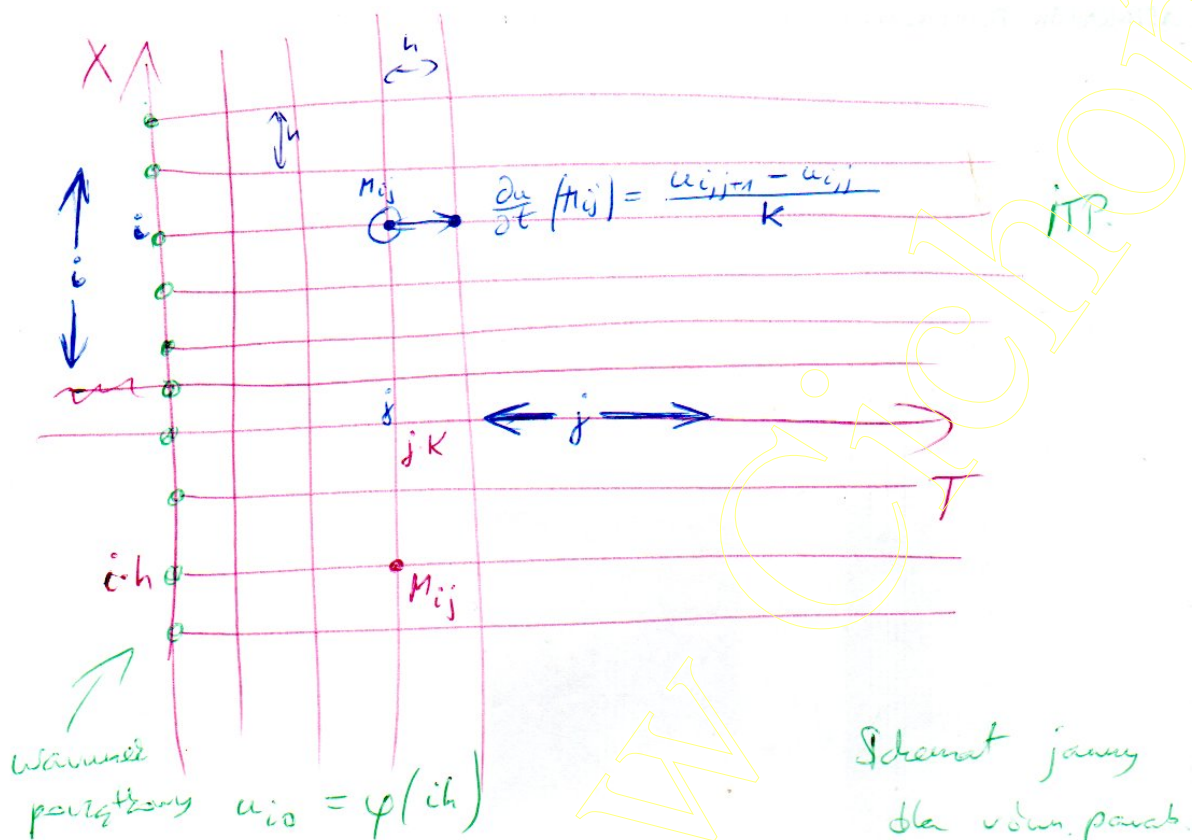 X
h
h
M_{ij}
∂u/∂t (M_{ij}) = (u_{i,j+1} - u_{i,j}) / K
iTP.
i
i
j
j
j·K
T
i·h
M_{ij}
warunek
początkowy u_{i0} = φ(ih)
Schemat jawny
dla równ. parab.
W. Cichoń